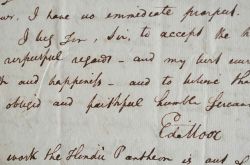 I have no immediate prospect.
I beg Sir, Sir, to accept the
respectful regards — and my best
and happiness — and to believe tha
obliged and faithful humble Servan
Ed: Moor
work the Hindu Pantheon is out of